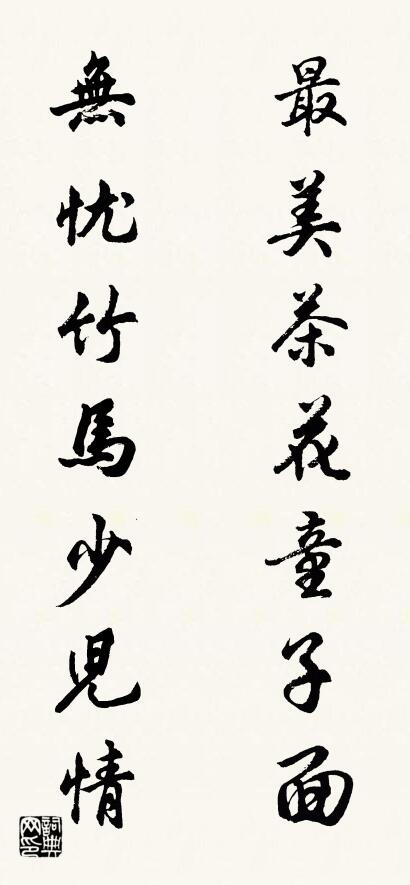 最美茶花童子面
無忧竹馬少兒情
詞典网印